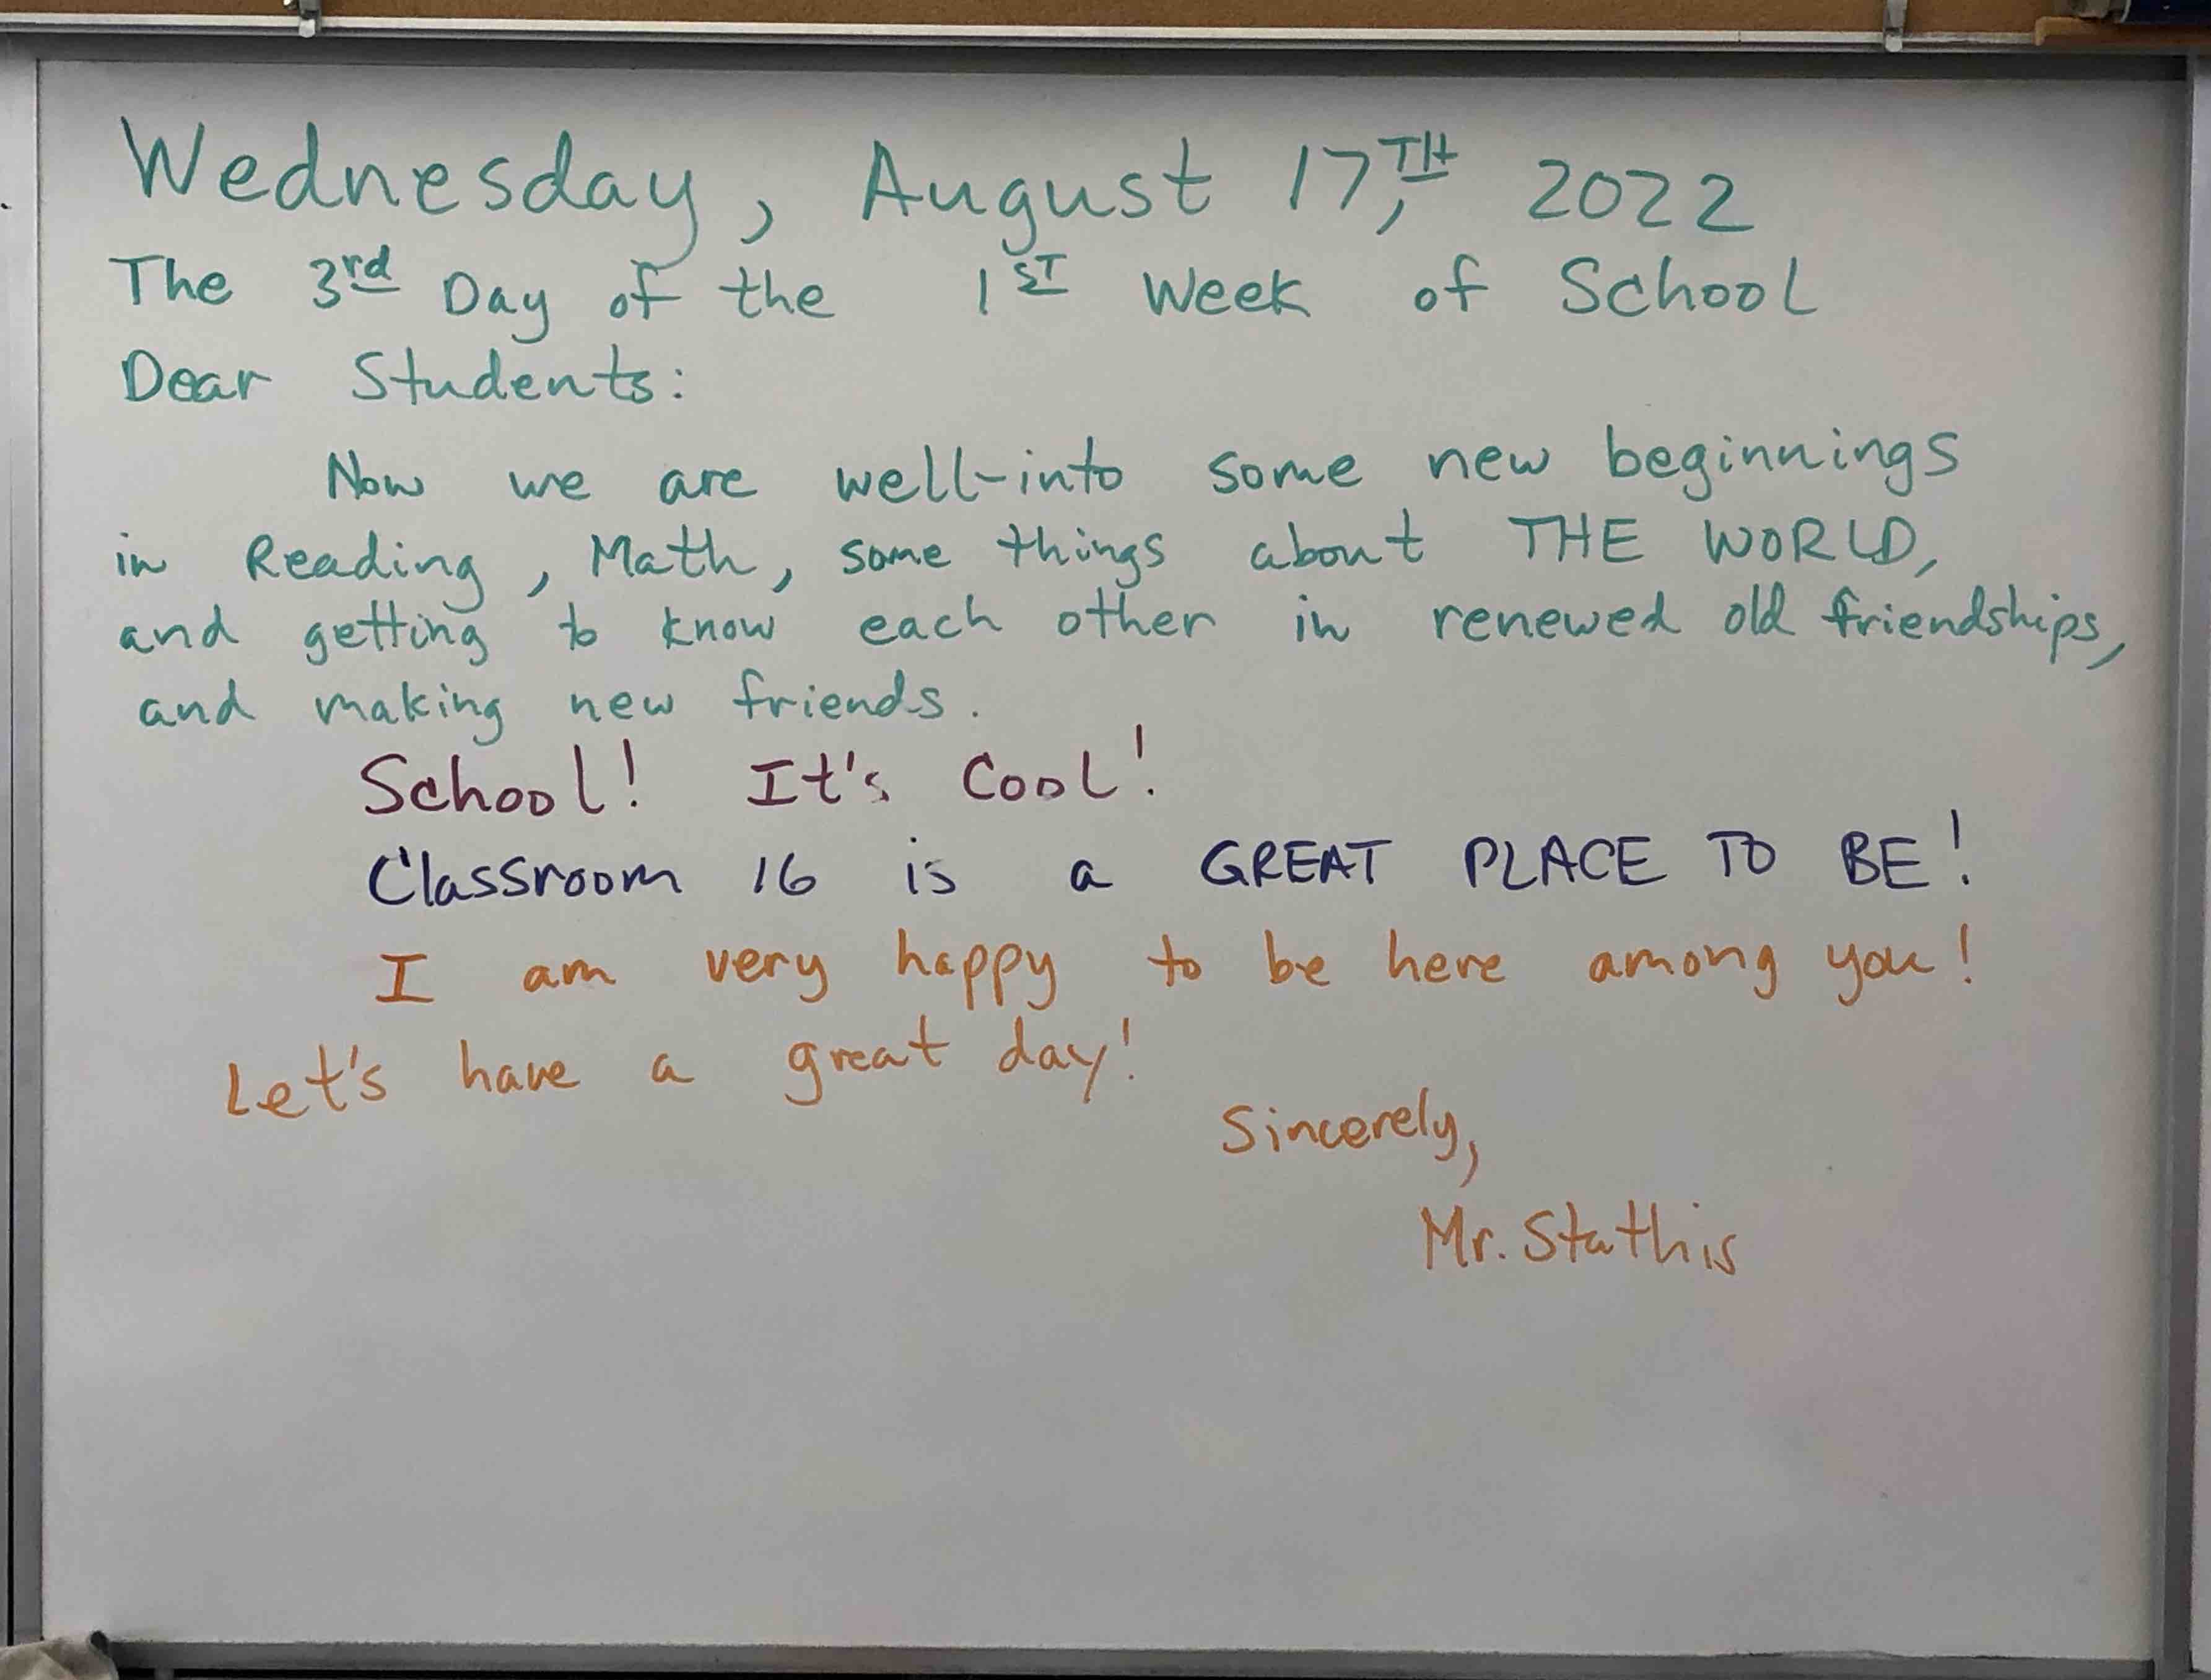 Wednesday, August 17TH, 2022
The 3rd Day of the 1ST Week of School
Dear Students:
Now we are well-into some new beginnings
in Reading, Math, some things about THE WORLD,
and getting to know each other in renewed old friendships,
and making new friends.
School! It's Cool!
Classroom 16 is a GREAT PLACE TO BE!
I am very happy to be here among you!
Let's have a great day!
Sincerely,
Mr. Stathis